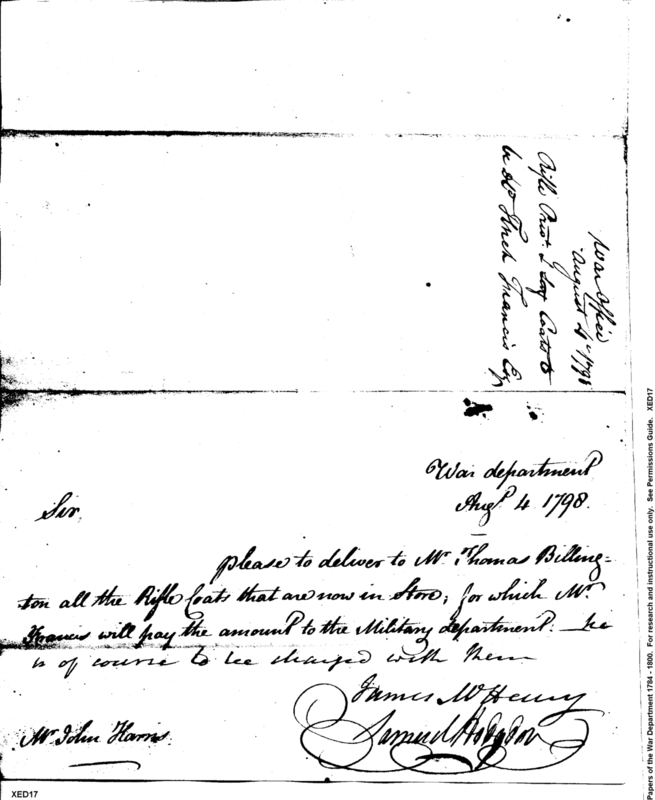 War Office
August 4th 1798
Rifle Coats to
be Francis Esq
War department
Augt. 4 1798.
Sir
please to deliver to Mr. Thomas Billing-
ton all the Rifle Coats that are now in Store; for which Mr
Francis will pay the amount to the Military department. he
is of course to be charged with them
James McHenry
Samuel Hodgdon
Mr John Harris
XED17
Papers of the War Department 1784 - 1800. For research and instructional use only. See Permissions Guide. XED17